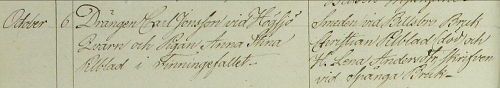 October 6. Drängen Carl Jonsson vid Högsjö
Qvarn och Pigan Anna Stina
Pilblad i Finningefallet.
Smeden vid Bruk
Christian Pilblad (död) och
H. Lena Andersdr. skrifven
vid Spånga Bruk.